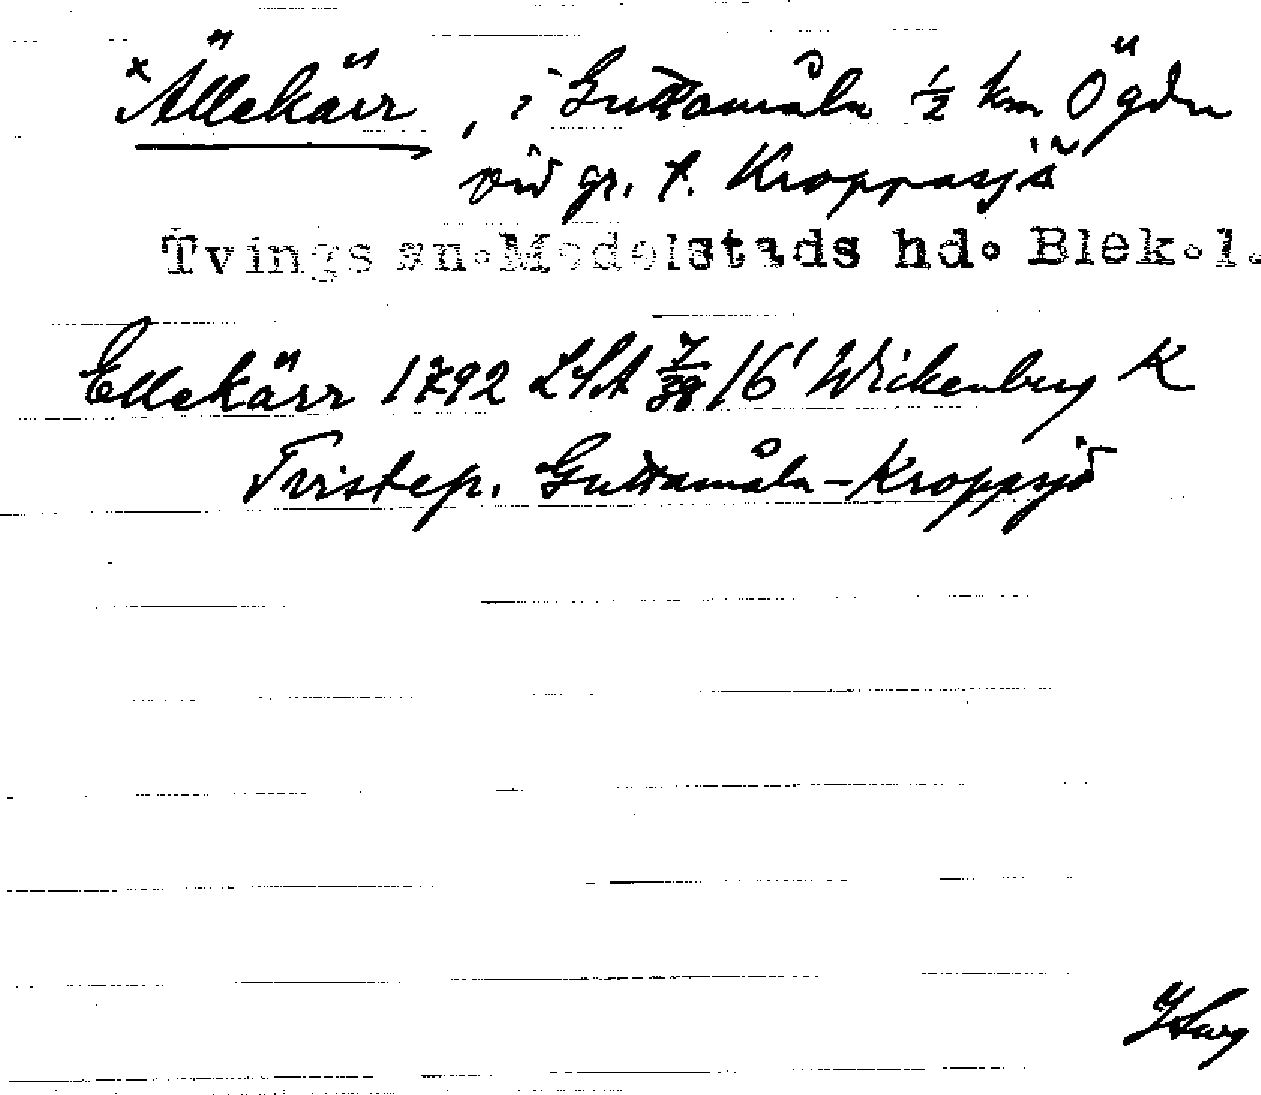 ×Ällekärr, i Guttamåla ½ km Ö gdn
vid gr. t. Kroppasjö
Tvings sn. Medelstads hd. Blek. l.
Ellekärr 1792 LSA 7/38 /6' Wickenberg K
Tvistep. Guttamåla-Kroppsjö